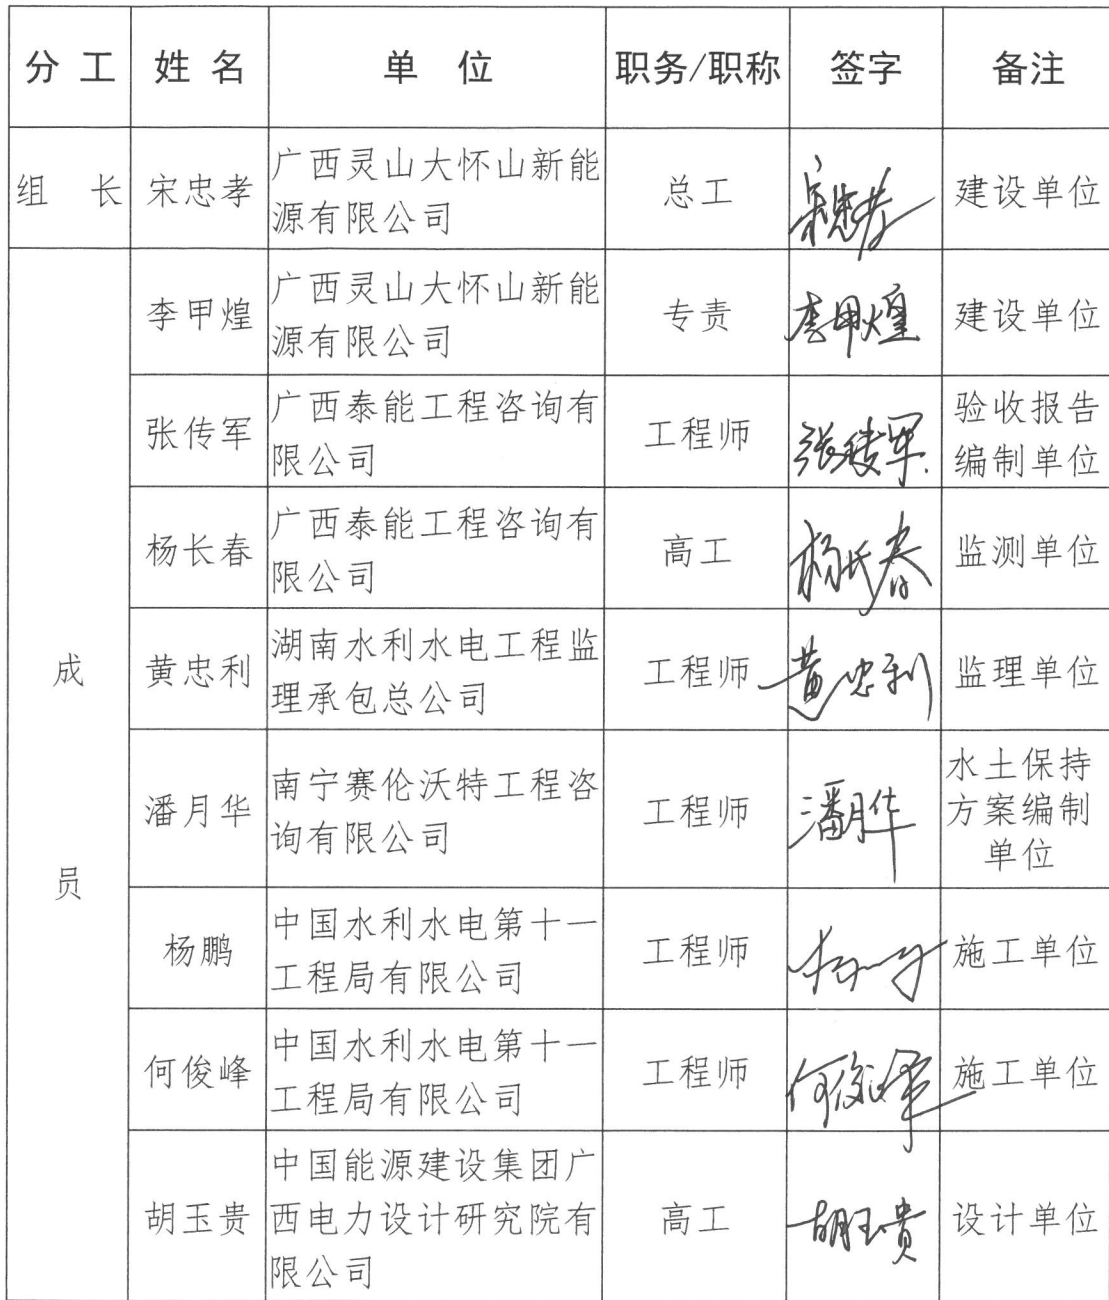 分 工 姓 名 单 位 职务/职称 签字 备注
组 长 宋忠孝 广西灵山大怀山新能
源有限公司 总工 宋忠孝 建设单位
成
员
李甲煌 广西灵山大怀山新能
源有限公司 专责 李甲煌 建设单位
张传军 广西泰能工程咨询有
限公司 工程师 张传军 验收报告
编制单位
杨长春 广西泰能工程咨询有
限公司 高工 杨长春 监测单位
黄忠利 湖南水利水电工程监
理承包总公司 工程师 黄忠利 监理单位
潘月华 南宁赛伦沃特工程咨
询有限公司 工程师 潘月华 水土保持
方案编制
单位
杨鹏 中国水利水电第十一
工程局有限公司 工程师 施工单位
何俊峰 中国水利水电第十一
工程局有限公司 工程师 何俊峰 施工单位
胡玉贵 中国能源建设集团广
西电力设计研究院有
限公司 高工 胡玉贵 设计单位